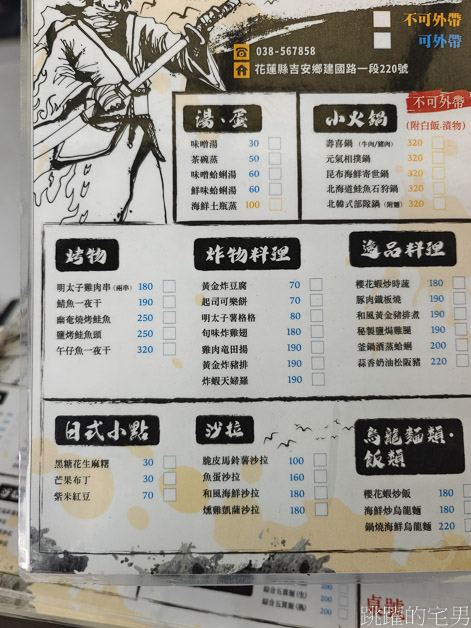 不可外帶
可外帶
038-567858
花蓮縣吉安鄉建國路一段220號
湯、蛋
味噌湯 30
茶碗蒸 50
味噌蛤蜊湯 60
鮮味蛤蜊湯 60
海鮮土瓶蒸 100
小火鍋
不可外帶
(附白飯.漬物)
壽喜鍋 (牛肉/豬肉) 320
元氣相撲鍋 320
昆布海鮮寄世鍋 320
北海道鮭魚石狩鍋 320
北韓式部隊鍋 (附麵) 320
烤物
明太子雞肉串(兩串) 180
鯖魚一夜干 190
幽庵燒烤鮭魚 250
鹽烤鮭魚頭 250
午仔魚一夜干 320
炸物料理
黃金炸豆腐 70
起司可樂餅 70
明太子薯格格 80
旬味炸雞翅 180
雞肉竜田揚 190
黃金炸豬排 190
炸蝦天婦羅 190
逸品料理
櫻花蝦炒時蔬 180
豚肉鐵板燒 190
和風黃金豬排煮 190
秘製鹽焗雞腿 190
釜鍋酒蒸蛤蜊 200
蒜香奶油松阪豬 220
日式小點
黑糖花生麻糬 30
芒果布丁 30
紫米紅豆 70
沙拉
脆皮馬鈴薯沙拉 100
魚蛋沙拉 160
和風海鮮沙拉 180
燻雞凱薩沙拉 180
烏龍麵類·
飯類
櫻花蝦炒飯 180
海鮮炒烏龍麵 180
鍋燒海鮮烏龍麵 220
綜合五貫握(生) 200
綜合五貫握(熟) 200
桌號
跳躍的宅男